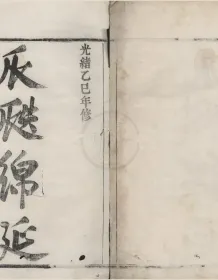 光緒乙巳年修
瓜瓞綿延